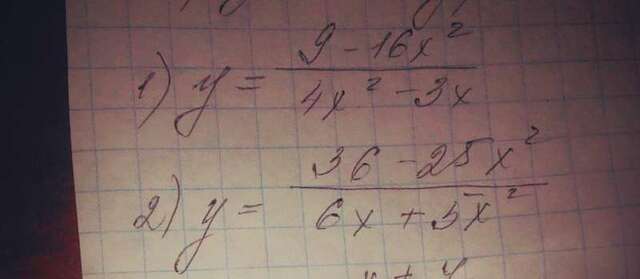 1) y = (9 - 16x²)/(4x² - 3x)
2) y = (36 - 25x²)/(6x + 5x²)